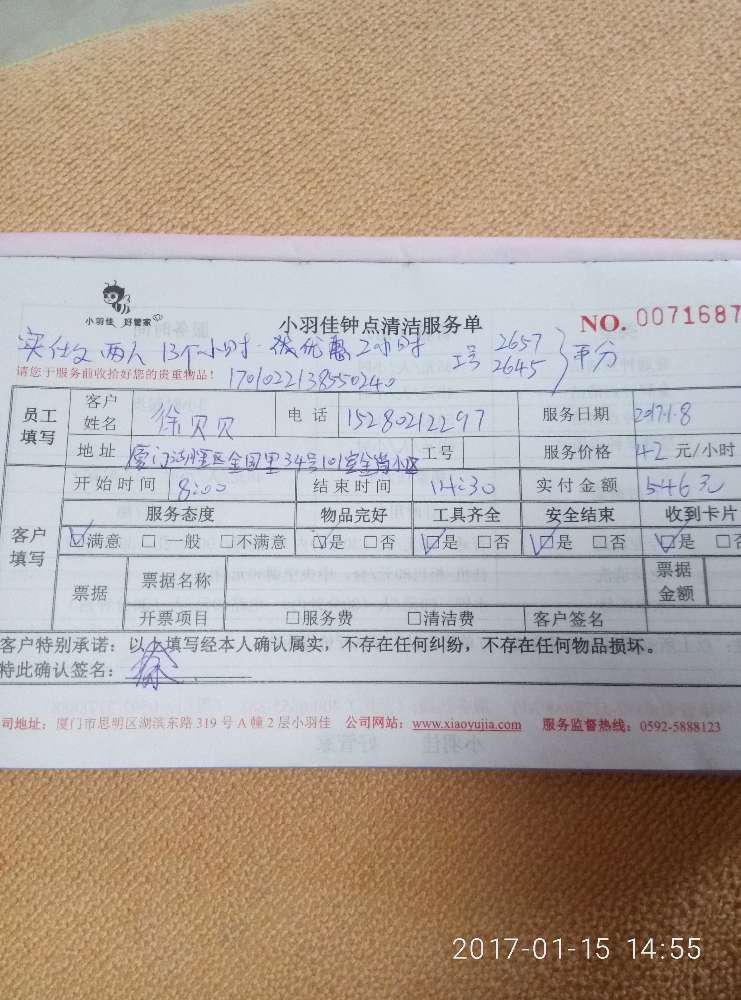 小羽佳 好管家
小羽佳钟点清洁服务单
NO. 0071687
两人 13个小时 优惠2小时 工号 2657 2645 平分
请您于服务前收拾好您的贵重物品! 1701022138550240
员工填写 客户姓名 徐贝贝 电话 15280212297 服务日期 2017.1.8
地址 厦门 区金国里34号101室金尚小区 工号 服务价格 42 元/小时
客户填写 开始时间 8:00 结束时间 14:30 实付金额 546元
服务态度 物品完好 工具齐全 安全结束 收到卡片
☑满意 □一般 □不满意 ☑是 □否 ☑是 □否 ☑是 □否 ☑是 □否
票据 票据名称 票据金额
开票项目 □服务费 □清洁费 客户签名
客户特别承诺：以上填写经本人确认属实，不存在任何纠纷，不存在任何物品损坏。
特此确认签名：徐
司地址：厦门市思明区湖滨东路 319 号 A 幢 2 层小羽佳 公司网站：www.xiaoyujia.com 服务监督热线：0592-5888123
2017-01-15 14:55